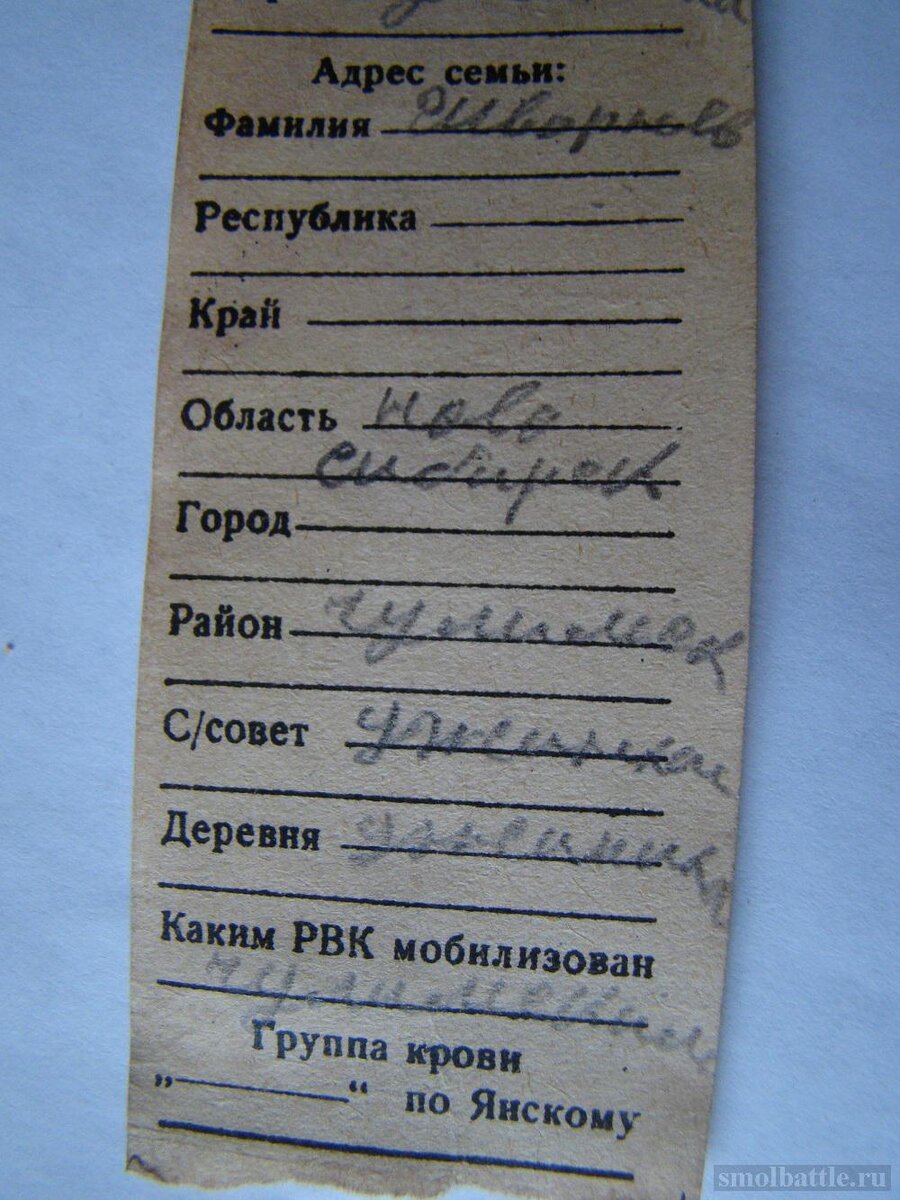 Адрес семьи:
Фамилия
Республика
Край
Область ново
сибирск
Город
Район чулимск
С/совет ужанихи
Деревня ужаниха
Каким РВК мобилизован
чулимским
Группа крови
„ “ по Янскому
smolbattle.ru